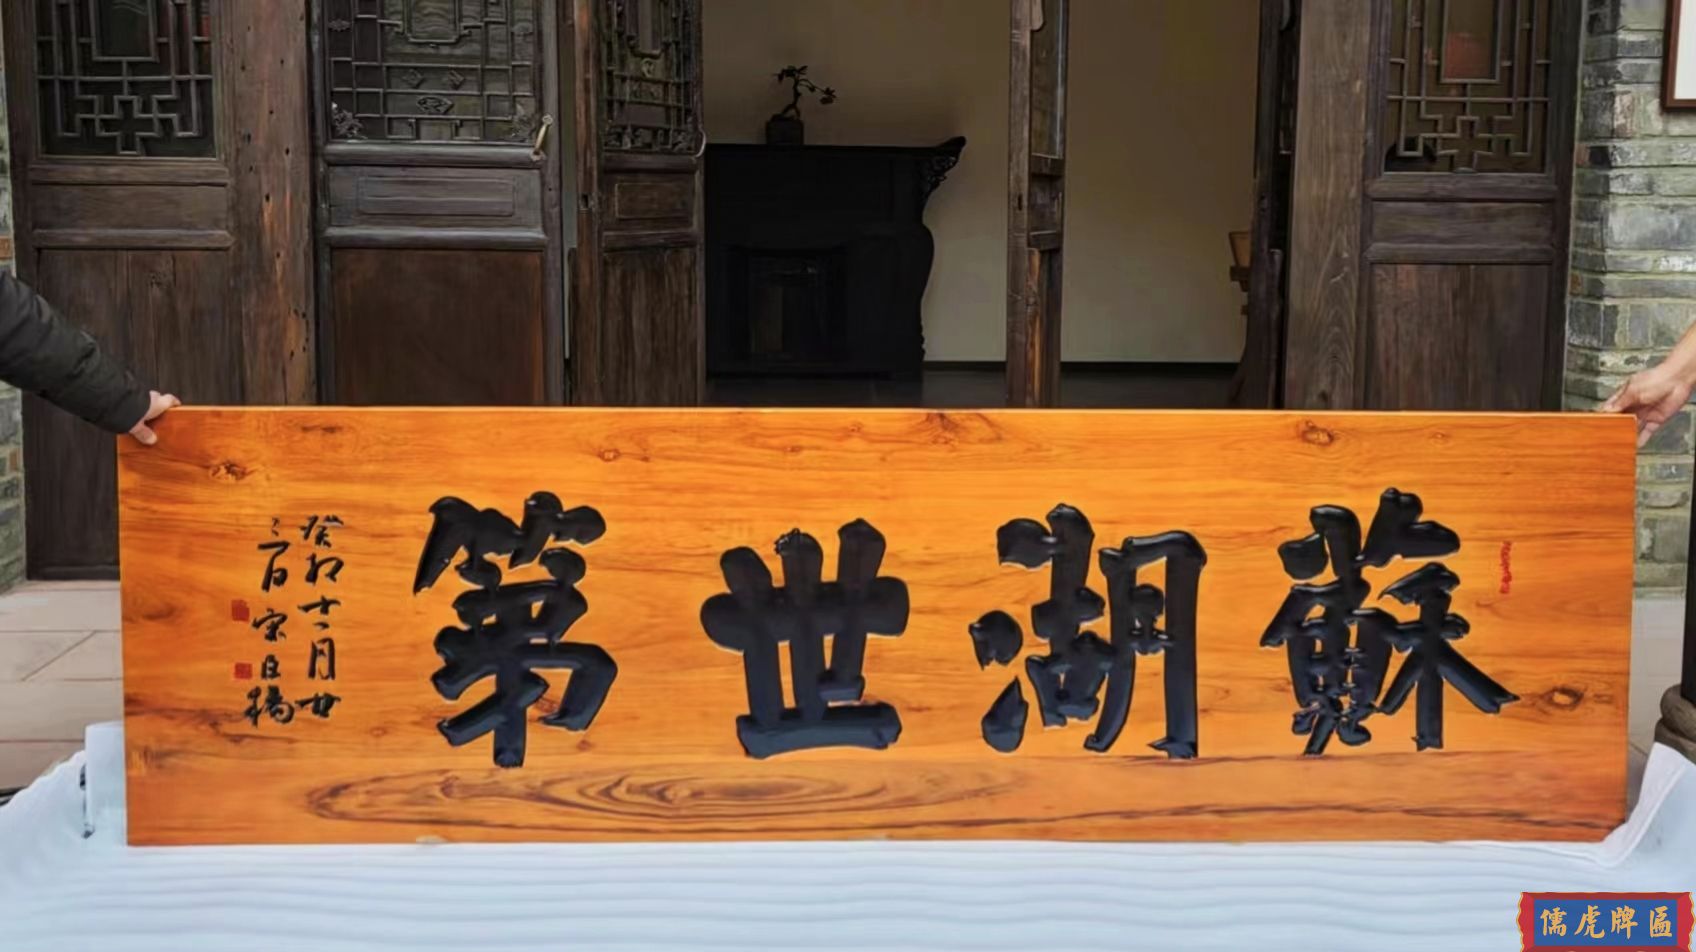 蘇湖世第
癸卯十一月廿
三日 宗臣橋
儒虎牌匾